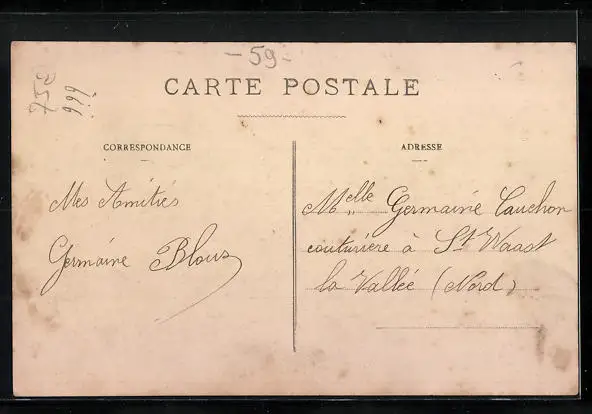 - 59 -
CARTE POSTALE
CORRESPONDANCE
ADRESSE
Mes Amitiés
Germaine Blous
Melle Germaine Cauchon
couturière à St Waast
la Vallée (Nord)